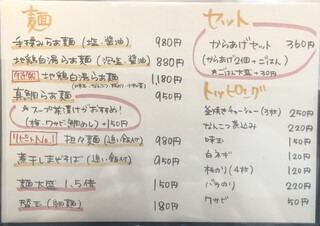 麺
手揉みらぁ麺(塩,醤油) 980円
地鶏白湯らぁ麺(塩,醤油) 880円
特製 地鶏白湯らぁ麺 1,180円
真鯛らぁ麺 950円
スープ茶漬けがおすすめ!
(梅,ワサビ,鯛めし)+150円
リピートNo.1 担々麺(追い飯付) 980円
煮干しまぜそば(追い飯付) 950円
麺大盛 1.5倍 150円
替玉(細麺) 180円
セット
からあげセット 360円
(からあげ2個+ごはん)
ごはん大盛+30円
トッピング
釜焼きチャーシュー(3枚) 250円
なんこつ煮込み 220円
味玉 150円
白ネギ 120円
梅のり(4枚) 120円
バラのり 220円
ワサビ 50円